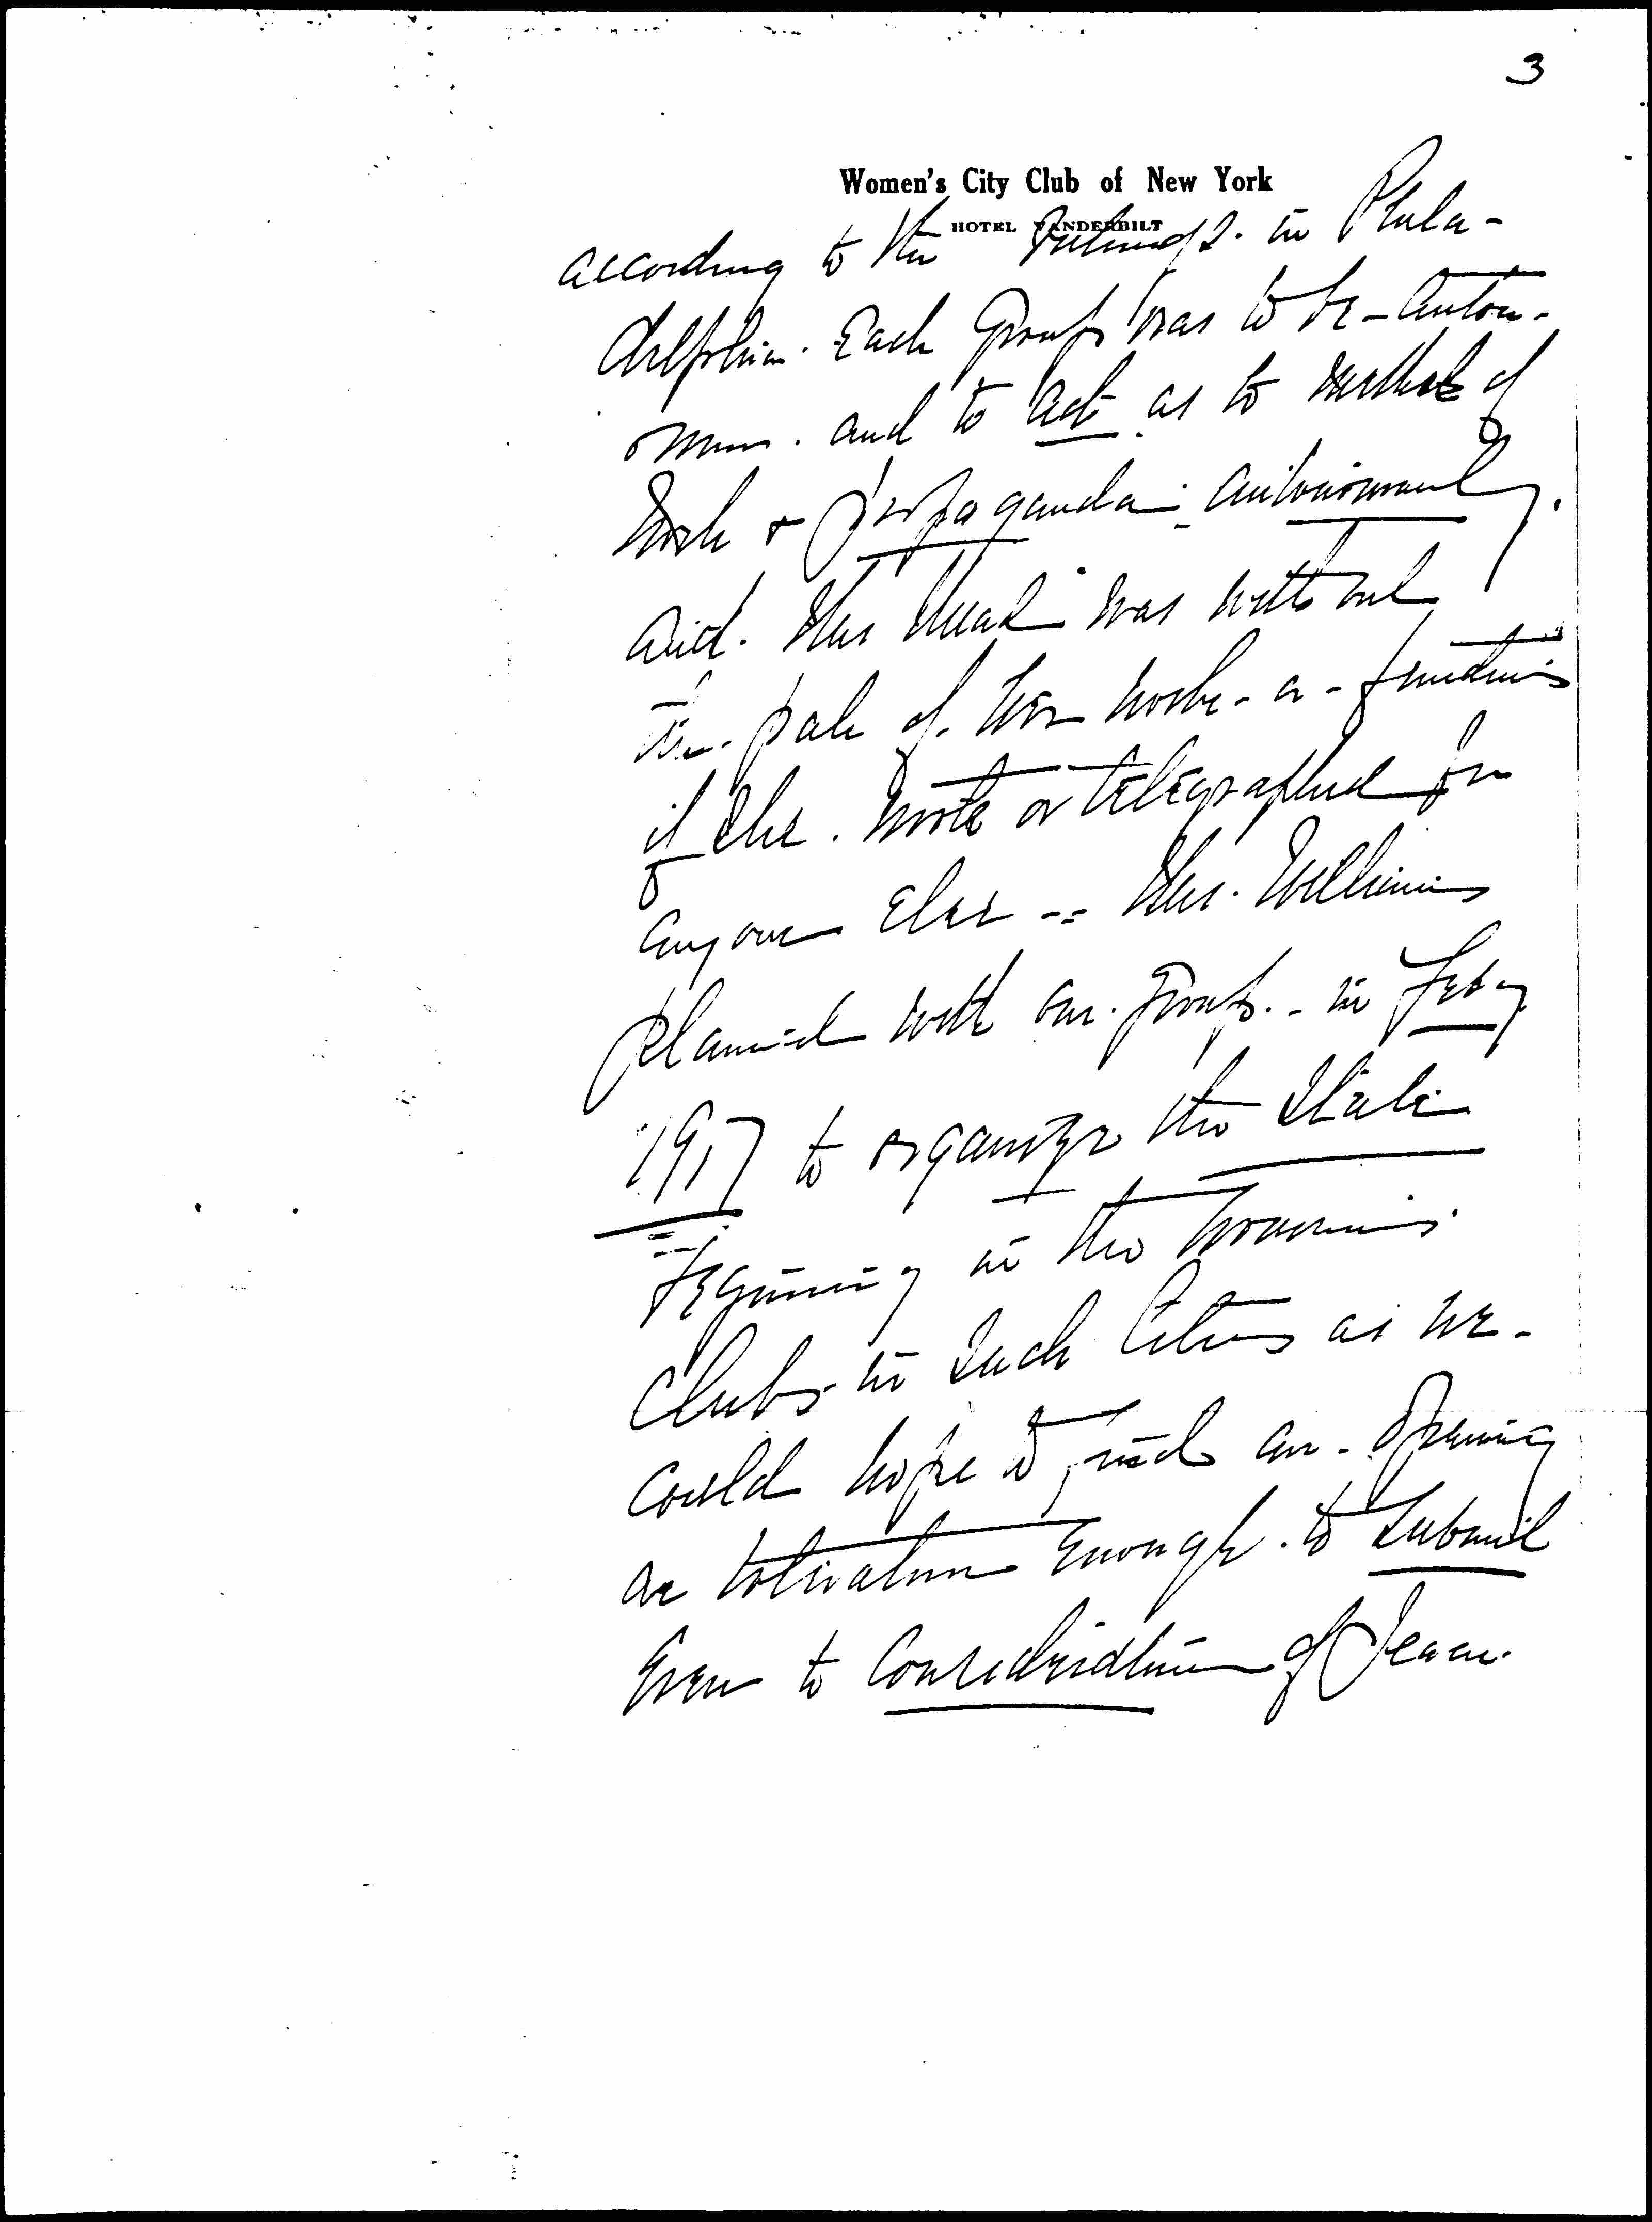 3
Women's City Club of New York
HOTEL VANDERBILT
according to the rulings. in Phila-
delphia. Each Group was to be - Auton-
omous. and to act as to methods of
work & propaganda - autonomously.
And. Mrs Mead was without
the. pale of. her work - a -
if she. wrote or telegraphed for
anyone Else -- Mrs. Williams
planned with our. Group. - in Feby
1917 to organize the State
beginning in the Women's
Clubs - in such Cities as we -
could hope to find an - Opening
or toleration Enough. to submit
Even to Consideration of Peace.